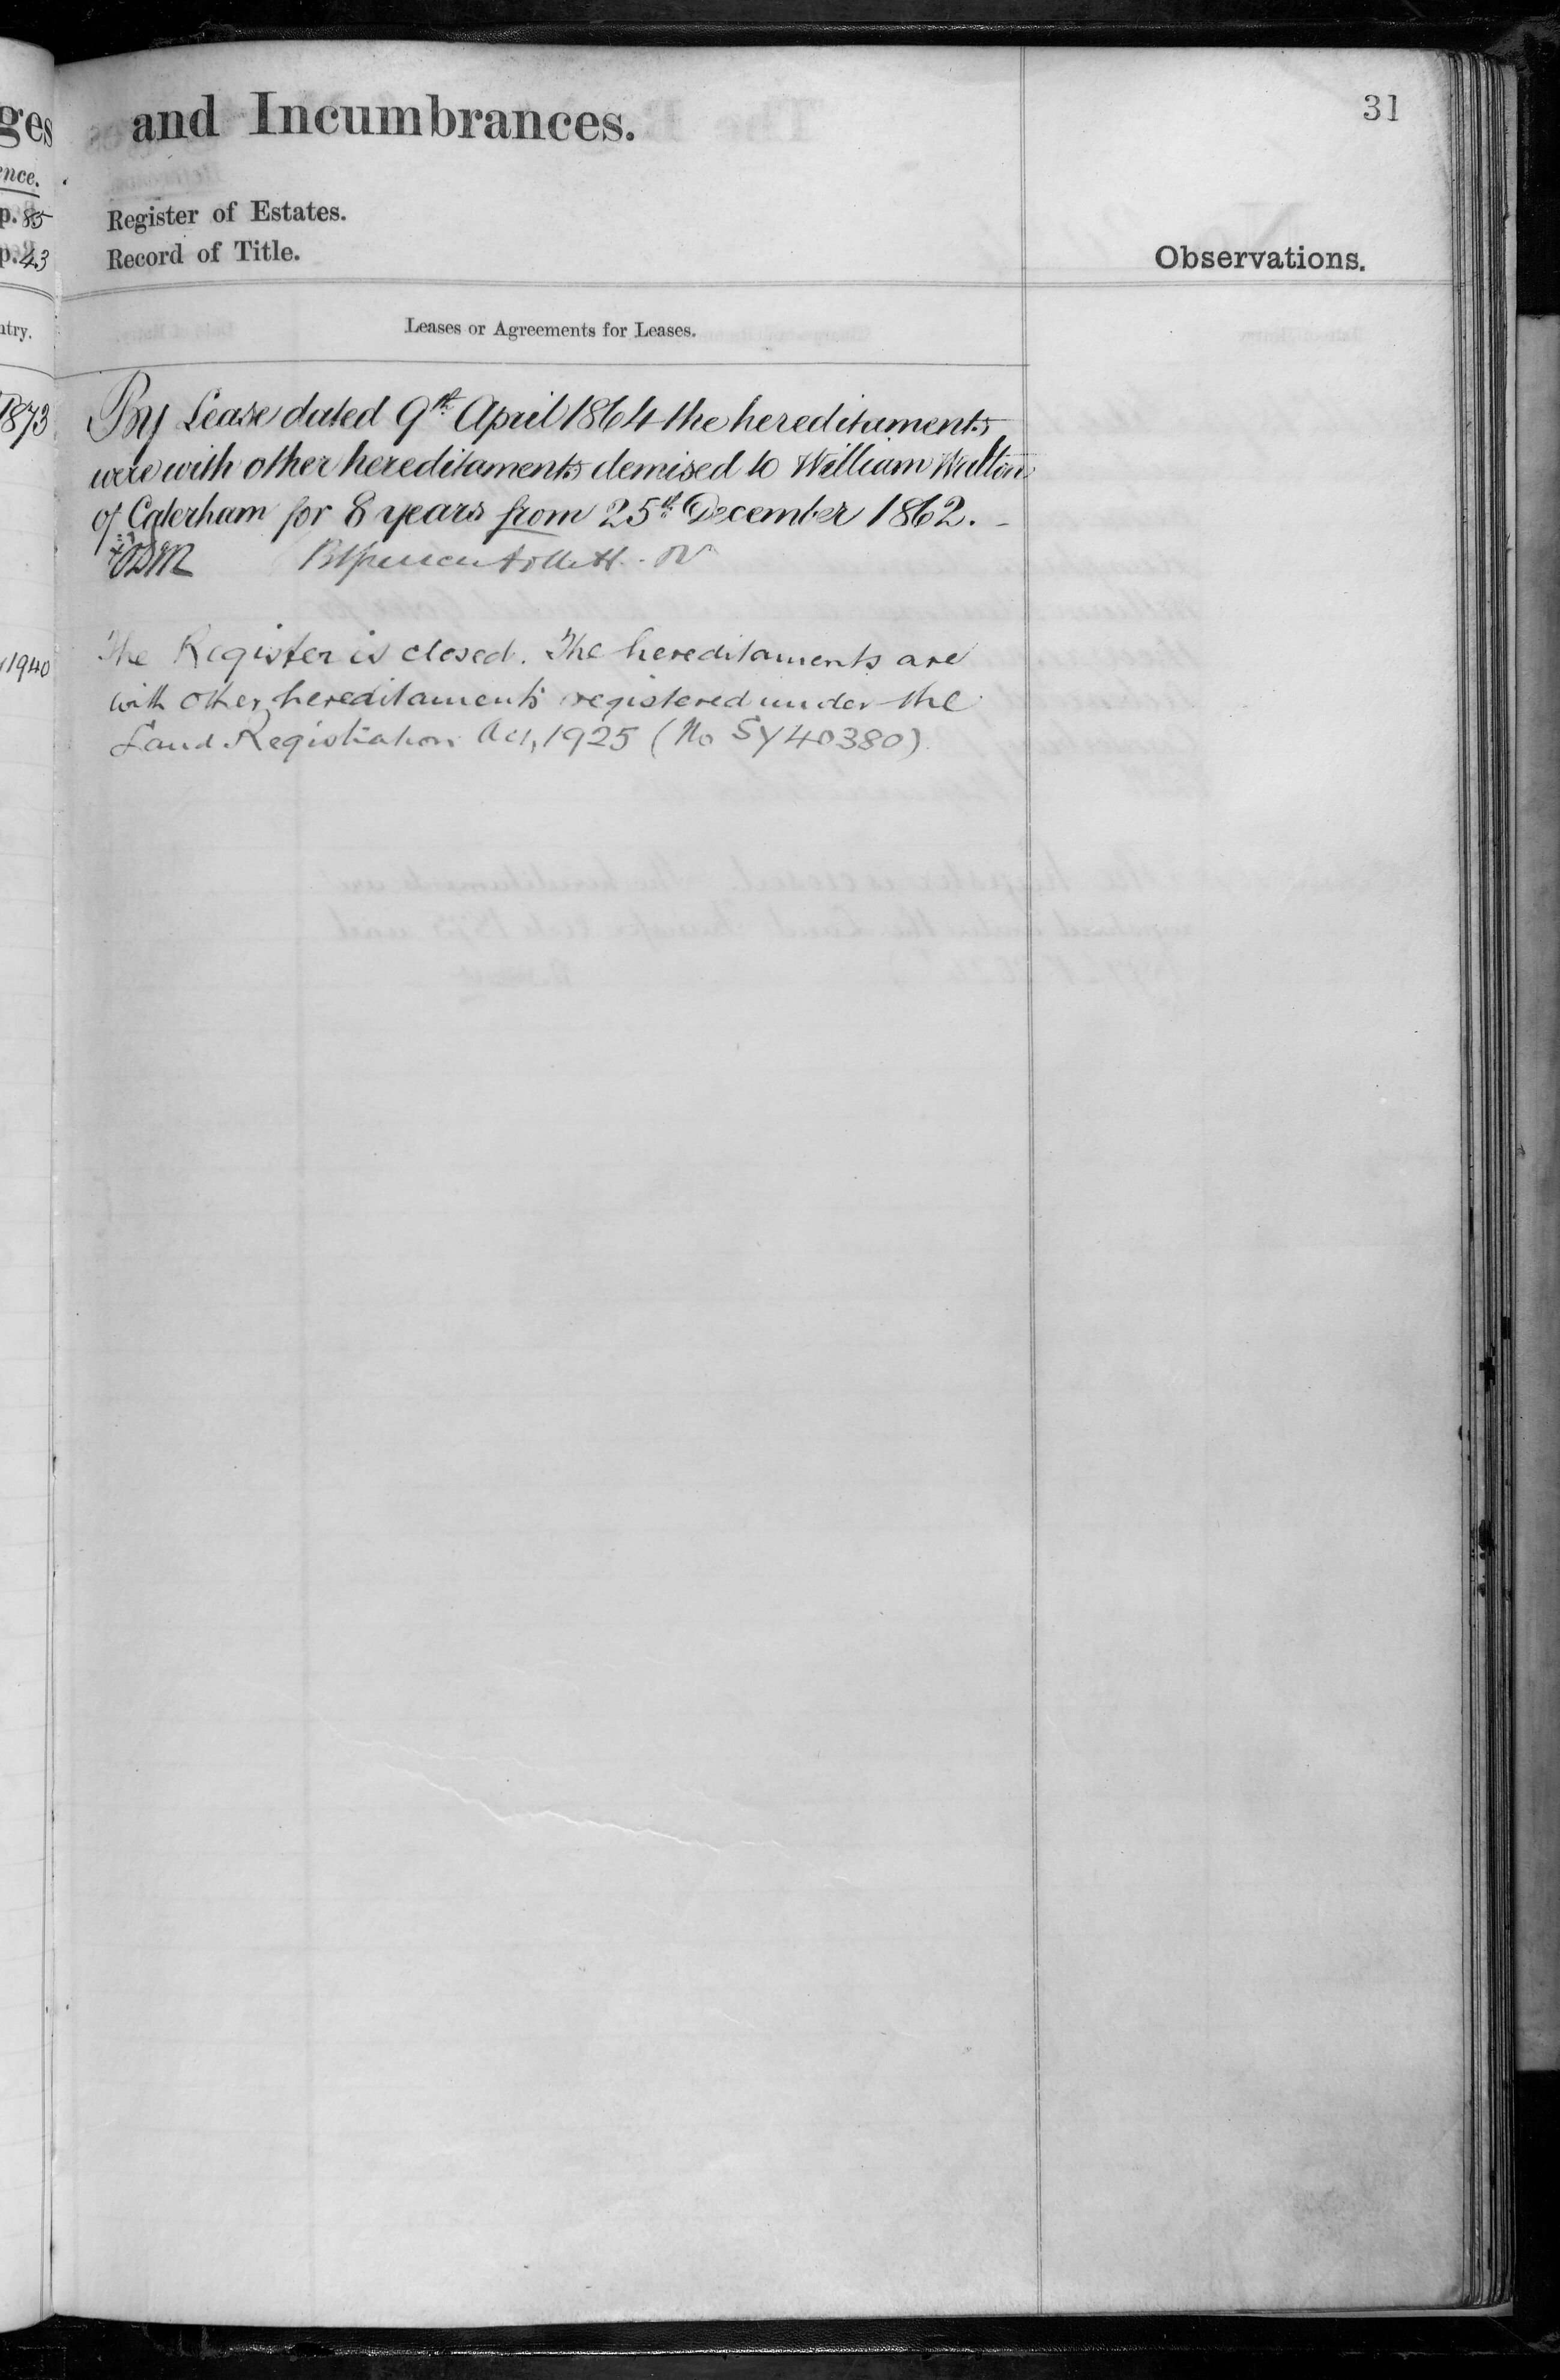 ges
and Incumbrances.
31
ence.
p. 85
Register of Estates.
p. 43
Record of Title.
Observations.
ntry.
Leases or Agreements for Leases.
1873
By Lease dated 9th April 1864 the hereditaments
were with other hereditaments demised to William Walton
of Caterham for 8 years from 25th December 1862. -
The Register is closed. The hereditaments are
1940
with other hereditaments registered under the
Land Registration Act, 1925 (No SY40380).